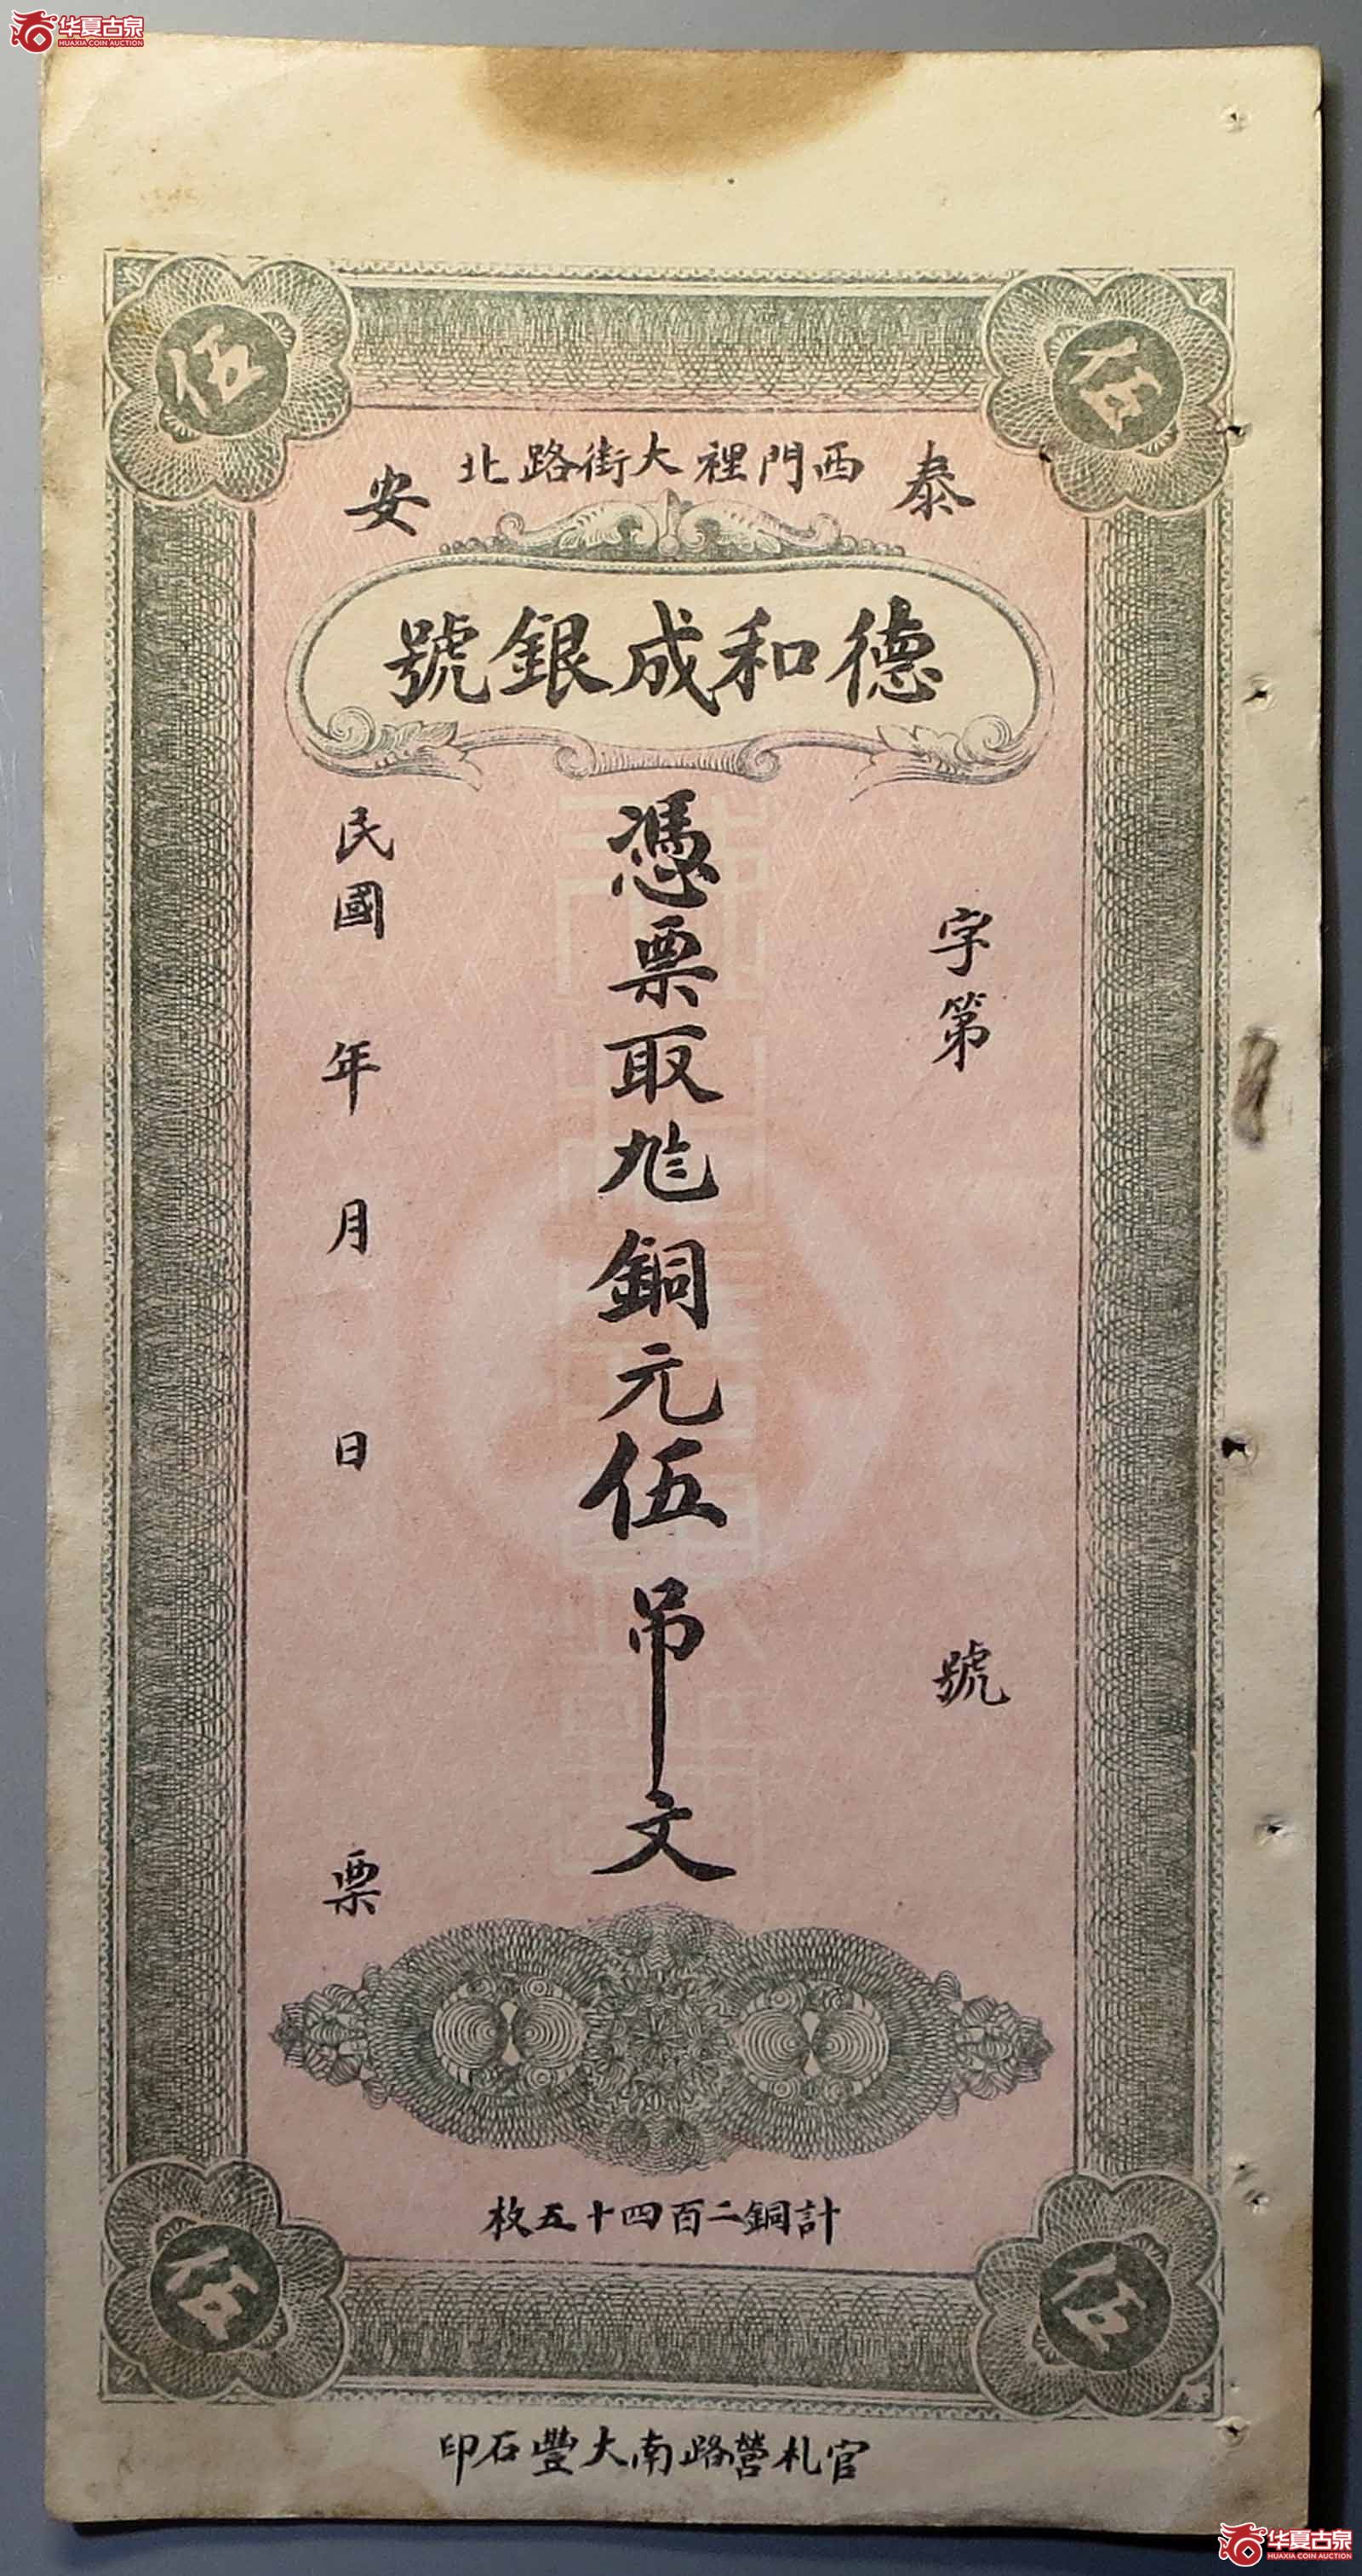 华夏古泉
HUAXIA COIN AUCTION
伍
伍
泰安
西門裡大街路北
德和成銀號
字第 號
憑票取 銅元伍吊文
民國 年 月 日 票
計銅二百四十五枚
伍
伍
官札營路南大豐石印
华夏古泉
HUAXIA COIN AUCTION